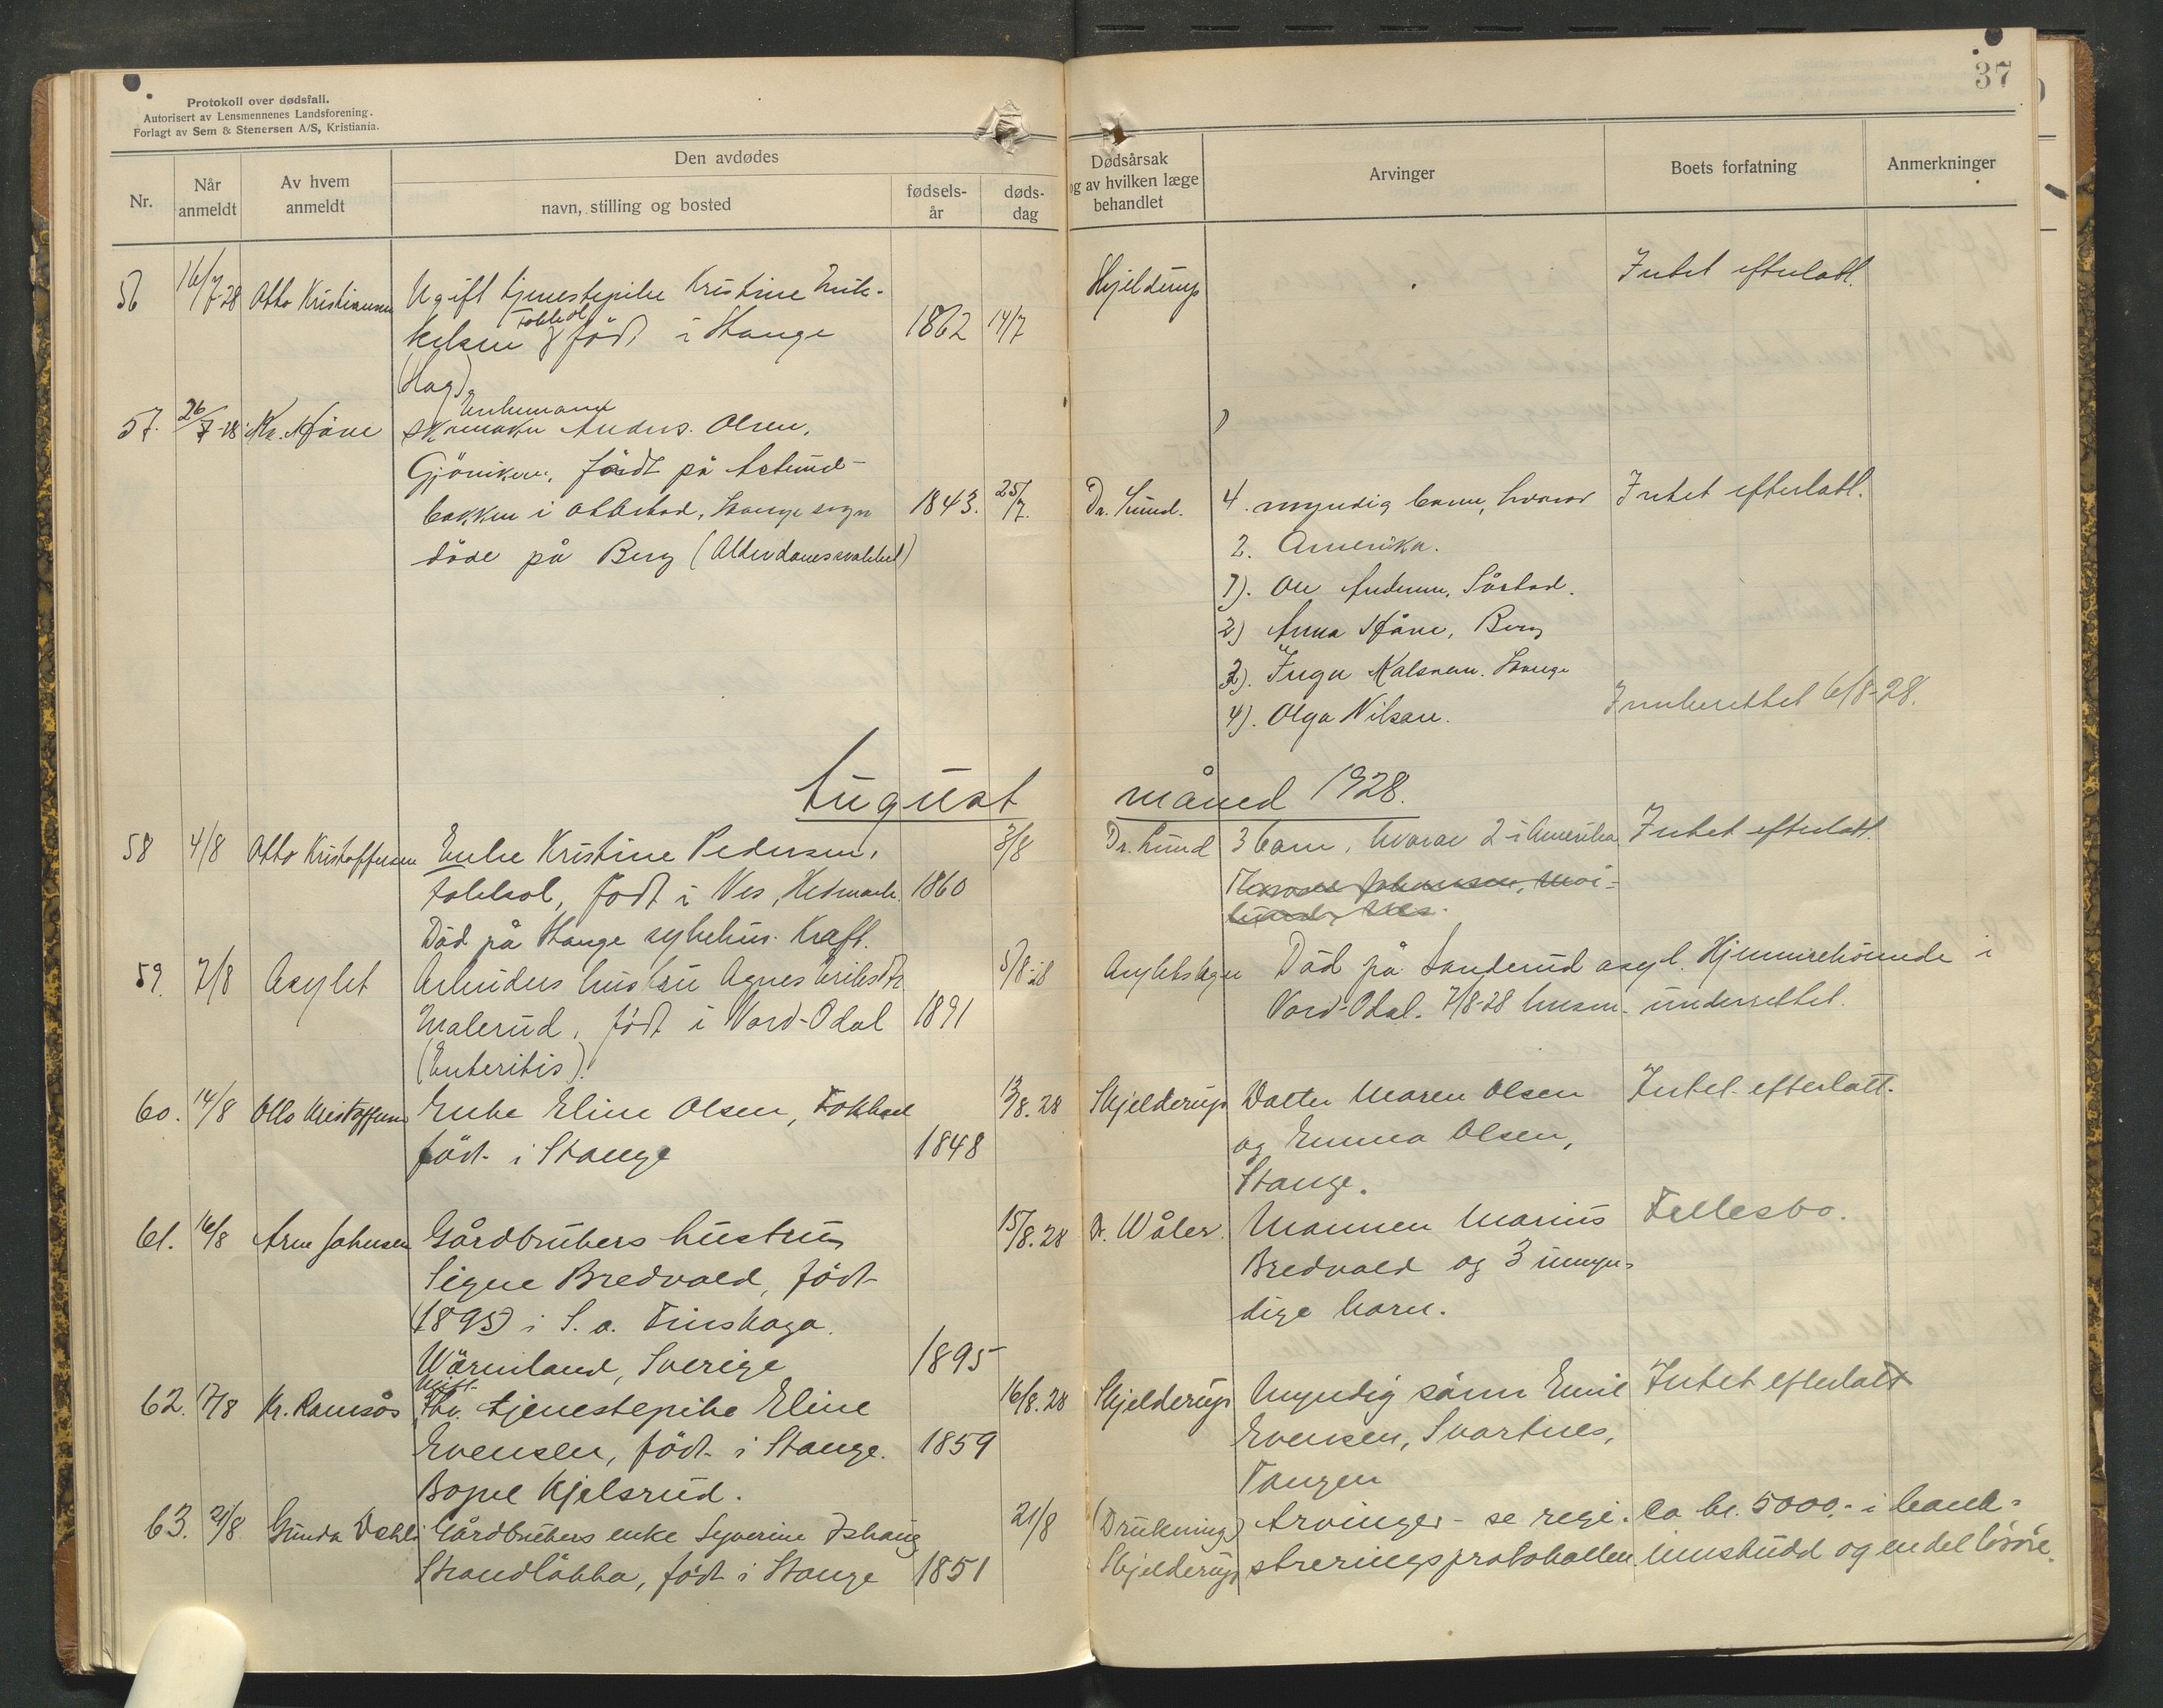 37
Protokoll over dødsfall.
Autorisert av Lensmennenes Landsforening.
Forlagt av Sem & Stenersen A/S, Kristiania.
Nr.
Når anmeldt
Av hvem anmeldt
Den avdødes
navn, stilling og bosted
fødsels-år
døds-dag
Dødsårsak og av hvilken læge behandlet
Arvinger
Boets forfatning
Anmerkninger
56 16/7-28 Otto Kristiansen Ugift tjenestepike Kristine Mik- Hjelderup Intet efterlatt.
kelsen Tokkol født i Stange 1862 14/7
(Hag)
Enkemand
57. 26/7-28 Kr. Skomaker Anders Olsen,
Gjøviken, født på
bakken i Ottestad, Stange sogn 1843. 25/7. Dr. Lund. 4 myndig barn, hvorav Intet efterlatt.
døde på Berg 2. Amerika.
1). Ole Andersen, Sørstad.
2) Anna, Berg
3). Inga Stange
4). Olga Nilsen. Innberettet 6/8-28.
August måned 1928.
58 4/8 Otto Kristoffersen Enke Kristine Pedersen, 3/8 Dr. Lund 3 barn, hvorav 2 i Amerika Intet efterlatt.
Tokkol, født i Nes, Hedmark. 1860
Død på Stange sykehus. Kraft.
59. 7/8 Asylet Arbeiders hustru Agnes 5/8-28 Asyletslægen Død på Sanderud asyl. Hjemmehørende i
Malerud, født i Nord-Odal 1891 Nord-Odal. 7/8-28 lensm. underrettet.
(Enteritis)
60. 14/8 Otto Kristoffersen Enke Eline Olsen, Tokkol 13/8.28 Skjelderup Datter Maren Olsen Intet efterlatt.
født i Stange 1848 og Emma Olsen,
Stange.
61. 16/8 Arne Johnsen Gårdbrukers hustru 15/8.28 Dr. Wåler. Mannen Marius Fellesbo.
Signe Bredvold, født Bredvold og 3 umyn-
(1895) i S. a. Finskoga. dige barn.
Wärmland, Sverige 1895
Ugift
62. 17/8 Kr. Ramsøs tjenestepike Eline 16/8.28 Skjelderup Myndig sønn Emil Intet efterlatt
Evensen, født i Stange. 1859 Evensen, Svartnes,
Bopel Kjelsrud. Tangen
63. 21/8 Gunda Dahl Gårdbrukers enke Syverine Ishaug 21/8 (Drukning) Arvinger - se regi- Ca kr. 5000,- i bank-
Strandløkka, født i Stange 1851 Skjelderup streringsprotokollen innskudd og en del løsøre.